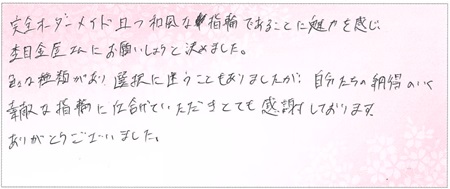 完全オーダーメイド且つ和風な指輪であることに魅力を感じ
杢目金屋さんにお願いしようと決めました。
色々な種類があり選択に迷うこともありましたが、自分たちの納得のいく
素敵な指輪に仕上げていただきとても感謝しております。
ありがとうございました。